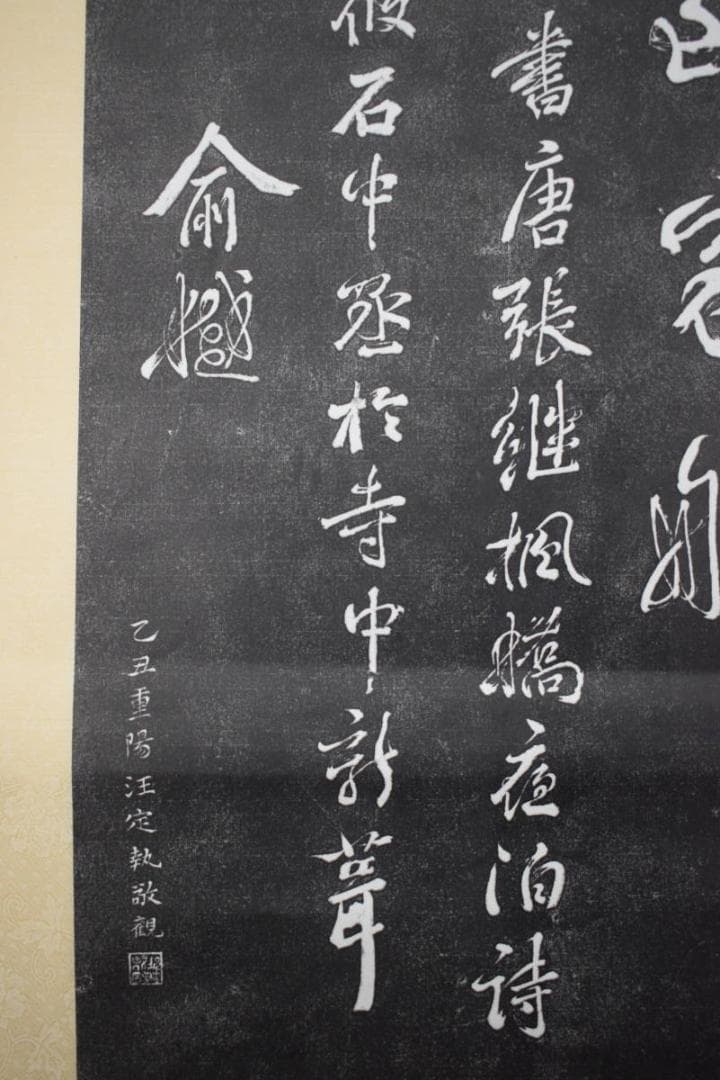 客船
書唐張継楓橋夜泊詩
筱石中丞於寺中新葺
俞樾
乙丑重陽汪定執敬觀